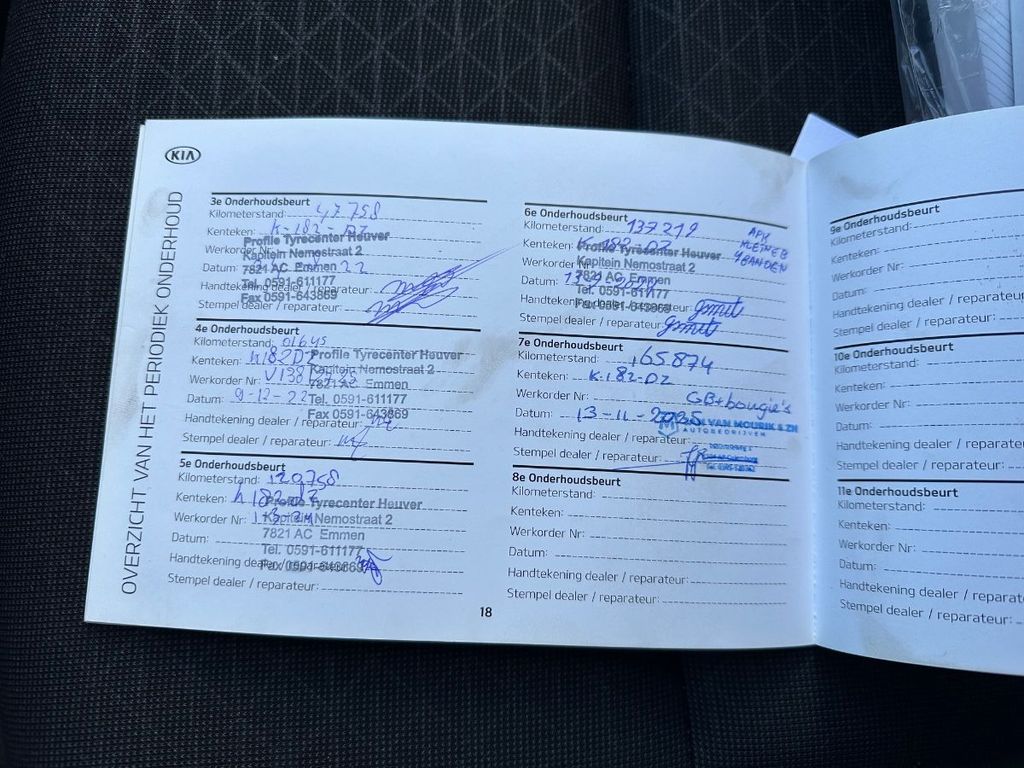 KIA
OVERZICHT VAN HET PERIODIEK ONDERHOUD
3e Onderhoudsbeurt
Kilometerstand: 47758
Kenteken: K-182-DZ
Profile Tyrecenter Heuver
Werkorder Nr:
Kapitein Nemostraat 2
Datum: 22
7821 AC Emmen
Tel. 0591-611177
Handtekening dealer / reparateur:
Fax 0591-643869
Stempel dealer / reparateur:
4e Onderhoudsbeurt
Kilometerstand:
Kenteken: K182DZ
Profile Tyrecenter Heuver
Kapitein Nemostraat 2
Werkorder Nr:
7821 AC Emmen
Datum: 9-12-22
Tel. 0591-611177
Fax 0591-643869
Handtekening dealer / reparateur:
Stempel dealer / reparateur:
5e Onderhoudsbeurt
Kilometerstand: 120758
Kenteken: K182DZ
Profile Tyrecenter Heuver
Werkorder Nr:
Kapitein Nemostraat 2
Datum:
7821 AC Emmen
Tel. 0591-611177
Handtekening dealer / reparateur:
Fax 0591-643869
Stempel dealer / reparateur:
6e Onderhoudsbeurt
Kilometerstand: 137219
APK
KLEINE B
4 BANDEN
Kenteken: K-182-DZ
Profile Tyrecenter Heuver
Werkorder Nr:
Kapitein Nemostraat 2
Datum:
7821 AC Emmen
Tel. 0591-611177
Handtekening dealer / reparateur:
Fax 0591-643869
Stempel dealer / reparateur:
7e Onderhoudsbeurt
Kilometerstand: 165874
Kenteken: K-182-DZ
Werkorder Nr: GB+bougie's
Datum: 13-11-2025
VAN MOURIK & ZN
AUTOBEDRIJVEN
Handtekening dealer / reparateur:
Stempel dealer / reparateur:
8e Onderhoudsbeurt
Kilometerstand:
Kenteken:
Werkorder Nr:
Datum:
Handtekening dealer / reparateur:
Stempel dealer / reparateur:
18
9e Onderhoudsbeurt
Kilometerstand:
Kenteken:
Werkorder Nr:
Datum:
Handtekening dealer / reparateur
Stempel dealer / reparateur:
10e Onderhoudsbeurt
Kilometerstand:
Kenteken:
Werkorder Nr:
Datum:
Handtekening dealer / reparateu
Stempel dealer / reparateur:
11e Onderhoudsbeurt
Kilometerstand:
Kenteken:
Werkorder Nr:
Datum:
Handtekening dealer / reparat
Stempel dealer / reparateur: